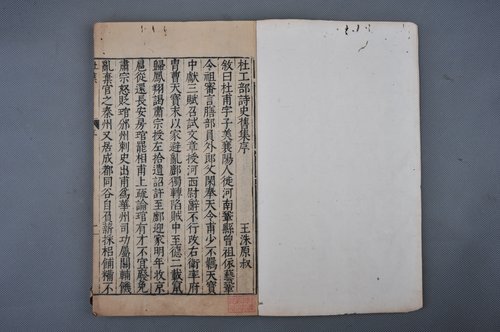 杜工部詩史舊集序
王洙原叔
敘曰杜甫字子美襄陽人徙河南鞏縣曾祖依藝鞏
令祖審言膳部員外郎父閑奉天令甫少不羈天寶
中獻三賦召試文章授河西尉辭不行改右衛率府
冑曹天寶末以家避亂鄜獨轉陷賊中至德二載竄
歸鳳翔謁肅宗授左拾遺詔許至鄜迎家明年收京
扈從還長安房琯罷相甫上疏論琯有才不宜廢免
肅宗怒貶琯邠州刺史出甫爲華州司功屬關輔饑
亂棄官之秦州又居成都同谷自負薪採梠餔糒不